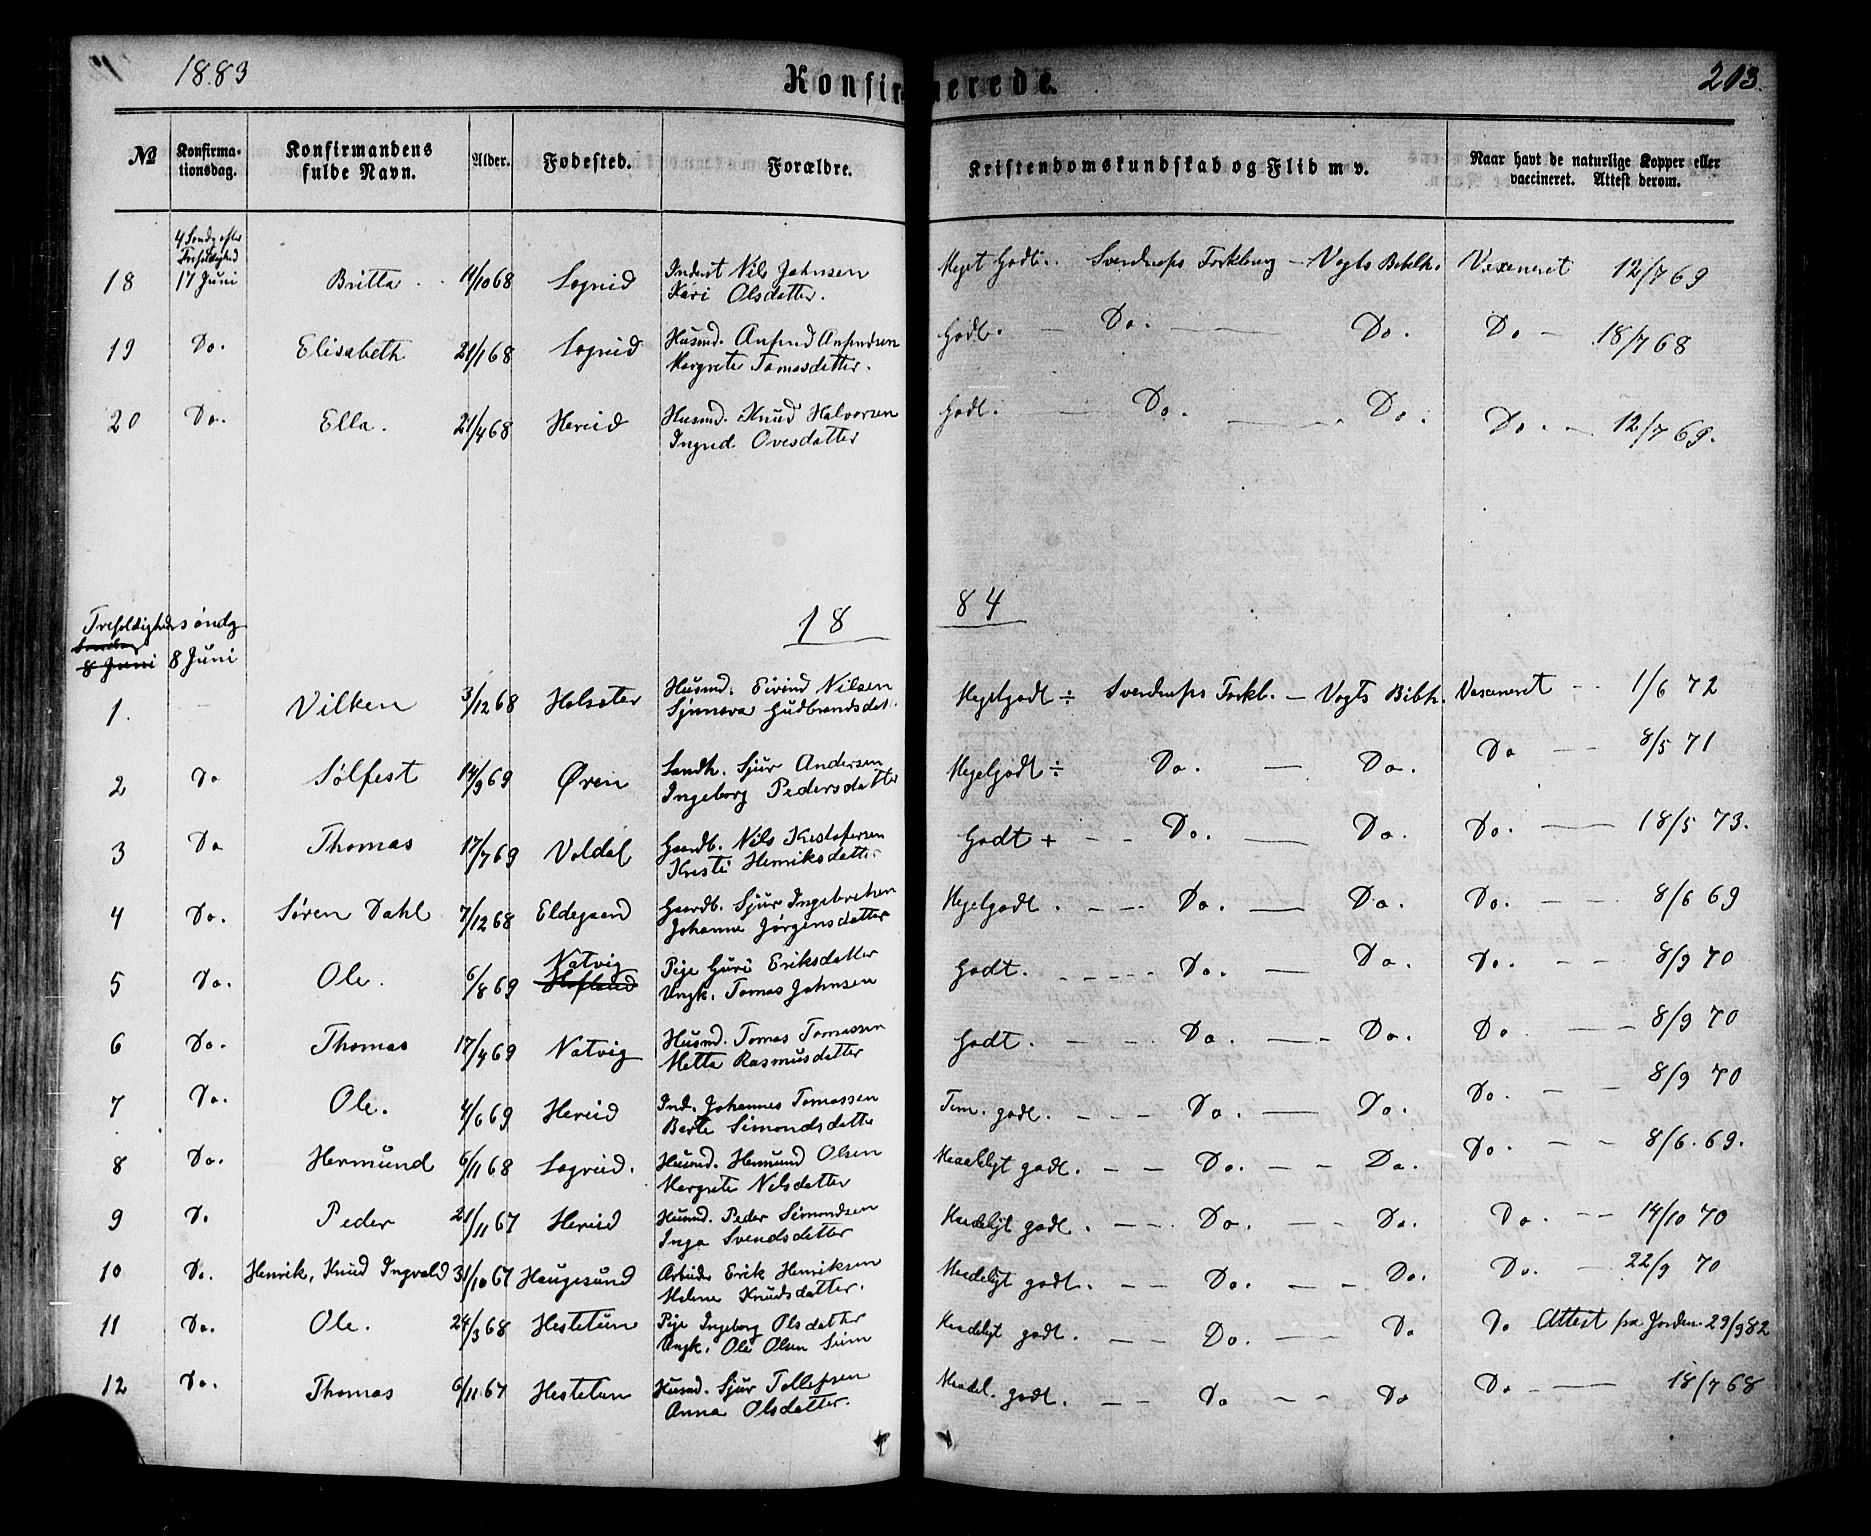 1883
Konfirmerede.
203.
№ Konfirma-tionsdag. Konfirmandens fulde Navn. Alder. Fødested. Forældre. Kristendomskundskab og Flid m v. Naar havt de naturlige Kopper eller vaccineret. Attest derom.
4 Sondg efter
Trefoldighed
18 17 Juni Britta 11/10 68 Sogni​d Indert Nils Johnsen Meget Godt. Sverdrups Forklaring — Vogts Bibelh. Vaxeneret 12/7 69
Kari Olsdatter.
19 Do. Elisabeth 21/1 68 Sognid Husmd. Godt. — Do. — Do. Do — 18/7 68
Margrete Tomasdatter.
20 Do. Ella. 21/4 68 Hereid Husmd. Knud Halvorsen Godt. — Do. — Do. Do. — 12/7 69.
Ingrid Ovesdatter
Trefoldigheds søndg 18 84
8 Juni 8 Juni
1. Vilken 3/12 68 Holsæter Husmd. Eivind Nilsen Megetgodt ÷ Sverdrups Forkl. — Vogts Bibh. Vaxeneret — 1/6 72
Synneva Gudbrandsdat.
2 Do Sølfest 14/9 69 Øren Landh. Sjur Andersen Megetgodt ÷ Do. — Do. Do — 8/5 71
Ingeborg Pedersdatter
3 Do Thomas 17/7 69 Voldal Gaardb. Nils Kristofersen Godt + — Do. — Do. Do. — 18/5 73.
Kristi Henriksdatter
4 Do. Søren Dahl 7/12 68 Eldegaard Gaardb. Sjur Ingebretsen Megetgodt. — Do. — Do. Do. — 8/6 69
Johanne Jørgensdatter
Natvig
5 Do. Ole. 6/8 69 Pige Guri Eriksdatter Godt. — Do. — Do. Do. — 8/9 70
Ungk. Tomas Johnsen
6 Do. Thomas 17/4 69 Natvig Husmd. Tomas Tomassen Godt. — Do. — Do. Do — 8/9 70
Metta Rasmusdatter
7 Do. Ole. 4/6 69 Hereid Ind. Johannes Tomassen Tem. godt. — Do. — Do. Do. — 8/9 70
Berte Simondsdatter
8 Do. Hermund 6/11 68 Sogni​d. Husmd. Hermund Olsen Maadeligt godt. — Do. — Do. Do. — 8/6. 69.
Margrete Nilsdatter
9 Do Peder 21/11 67 Hereid Husmd. Peder Simondsen Maadeligt godt. — Do. — Do. Do. — 14/10 70
Inga Svendsdatter
10 Do. Henrik, Knud Ingvald 31/10 67 Haugesund Arbeider Erik Henriksen Maadeligt godt. — Do. — Do. Do. — 22/9 70
Helene Knudsdatter.
11 Do. Ole. 24/3 68 Hestetun Pige Ingeborg Olsdatter Maadeligt godt. — Do. — Do Do Attest fra Jorden. 29/9 82
Ungk. Ole Olsen Sim
12 Do. Thomas 6/11 67 Hestetun Husmd. Sjur Tollefsen Maadel. godt. — Do — Do Do — 18/7 68
Anna Olsdatter.